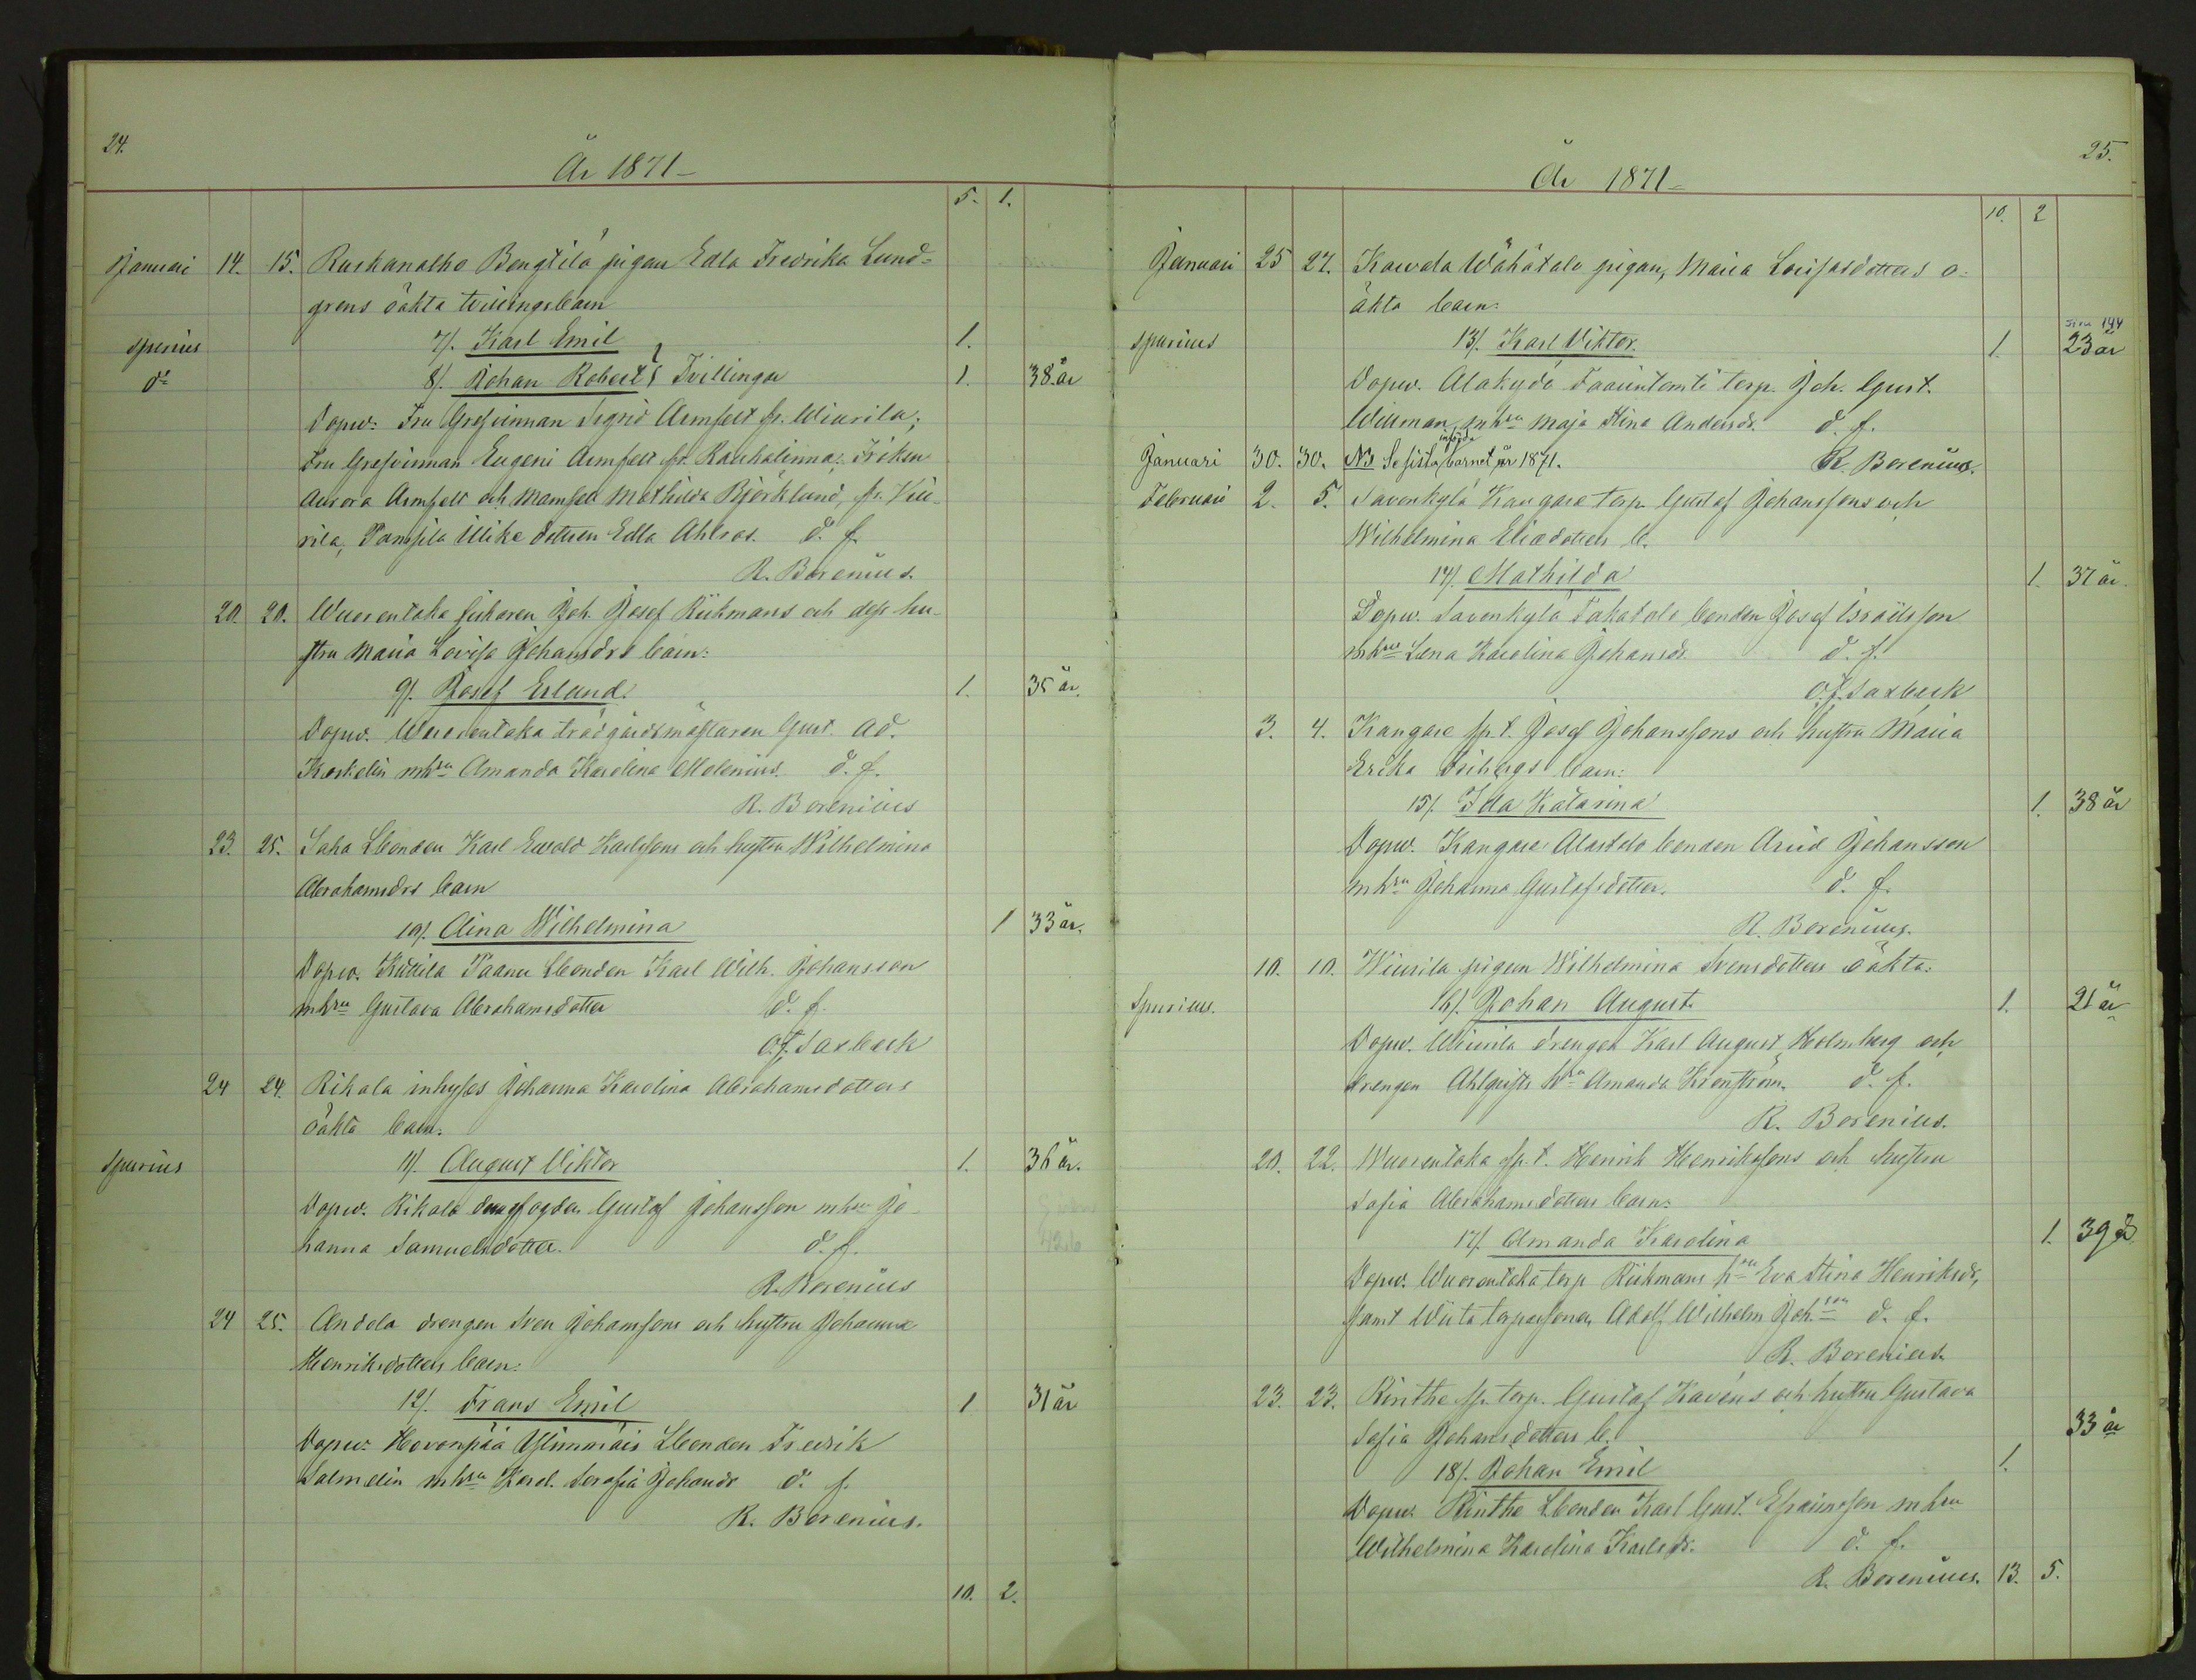 24.
År 1871 –
5. 1.
Januari 14. 15. Ruskanalho Bengtilä pigan Edla Fredrika Lund-
grens oäkta tvillingsbarn
spurius 7/. Karl Emil 1.
do 8/. Johan Robert } Tvillingar 1. 38 år
Dopw: Fru Grefvinnan Sigrid Armfelt fr. Wiurila;
Fru Grefvinnan Eugeni Armfelt fr. Rauhalinna; Fröken
Aurora Armfelt och Mamsell Mathilda Björklund, fr. Viu-
rila, Pampila Ulike dottren Edla Ahlros. d. f.
R. Borenius.
20. 20. Wuorentaka fiskaren Joh. Josef Riihmans och dess hu-
stru Maria Lovisa Johansdrs barn:
9/. Josef Erland. 1. 35 år.
Dopw. Wuorentaka trädgårdsmästaren Gust. Ad.
Koskelin mhru Amanda Karolina Molenius d. f.
R. Borenius
23. 25. Saha Lbonden Karl Ewald Karlssons och hustru Wilhelmina
Abrahamsdrs barn
10/. Olina Wilhelmina 1 33 år.
Dopw. Kukila Paanu Lbonden Karl Wilh. Johansson
mhru Gustava Abrahamsdotter d. f.
O. F. Saxbäck
24 24. Rikala inhyses Johanna Karolina Abrahamsdotters
oäkta barn.
spurius 11/. August Viktor 1. 36 år.
Dopw. Rikala drengfogden Gustaf Johansson mhru Jo-
hanna Samuelsdotter. d. f.
R. Borenius
24 25. Andela drengen Sven Johanssons och hustru Johanna
Henriksdotters barn:
12/. Frans Emil 1 31 år
Dopw: Hovonpää Ylimmäis Lbonden Fredrik
Salmelin mhru Karol. Serafia Johansdr d. f.
R. Borenius.
10. 2.
25.
År 1871 –
10. 2
Januari 25 27. Kavvala Wähätalo pigan, Maria Lovisasdotters o-
äkta barn:
spurius 13/. Karl Viktor. 1. 23 år
Dopw. Alakydö torp. Joh. Gust.
Willman mhru Maja Stina Andersdr. d. f.
Januari 30. 30. N3 Se sista införda barnet år 1871. R. Borenius.
Februari 2. 5. Savenkylä Kangare torp. Gustaf Johanssons och
Wilhelmina Eliædotters b.
14/. Mathilda 1. 37 år.
Dopw. Savenkylä Takatalo bonden Josef Israelsson
mhru Lena Karolina Johansdr. d. f.
O. F. Saxbäck
3. 4. Kangare sp. t. Josef Johanssons och hustru Maria
Erika Fribergs barn:
15/. Ida Katarina 1. 38 år
Dopw. Kangare Alastalo bonden Arvid Johansson
mhru Johanna Gustafsdotter. d. f.
R. Borenius.
10. 10. Wiurila pigan Wilhelmina Svensdotters oäkta:
Spurius. 16/. Johan August. 1. 21 år
Dopw. Wiurila drengen Karl August Holmberg och
drengen Ahlqvists hru Amanda Kronström. d. f.
R. Borenius.
20. 22. Wuorentaka sp. t. Henrik Henrikssons och hustru
Sofia Abrahamsdotters barn:
17/. Amanda Karolina 1. 39 år
Dopw. Wuorentaka torp Riihmans hru Eva Stina Henriksdr,
samt Wiita torparsonen Adolf Wilhelm Johson d. f.
R. Borenius.
23. 23. Rinthe sp. torp. Gustaf Kavéns och hustru Gustava
Sofia Johansdotters b. 33 år
18/. Johan Emil 1.
Dopw: Rinthe Lbonden Karl Gust. Efraimsson mhru
Wilhelmina Karolina Karlsdr. d. f.
R. Borenius. 13. 5.